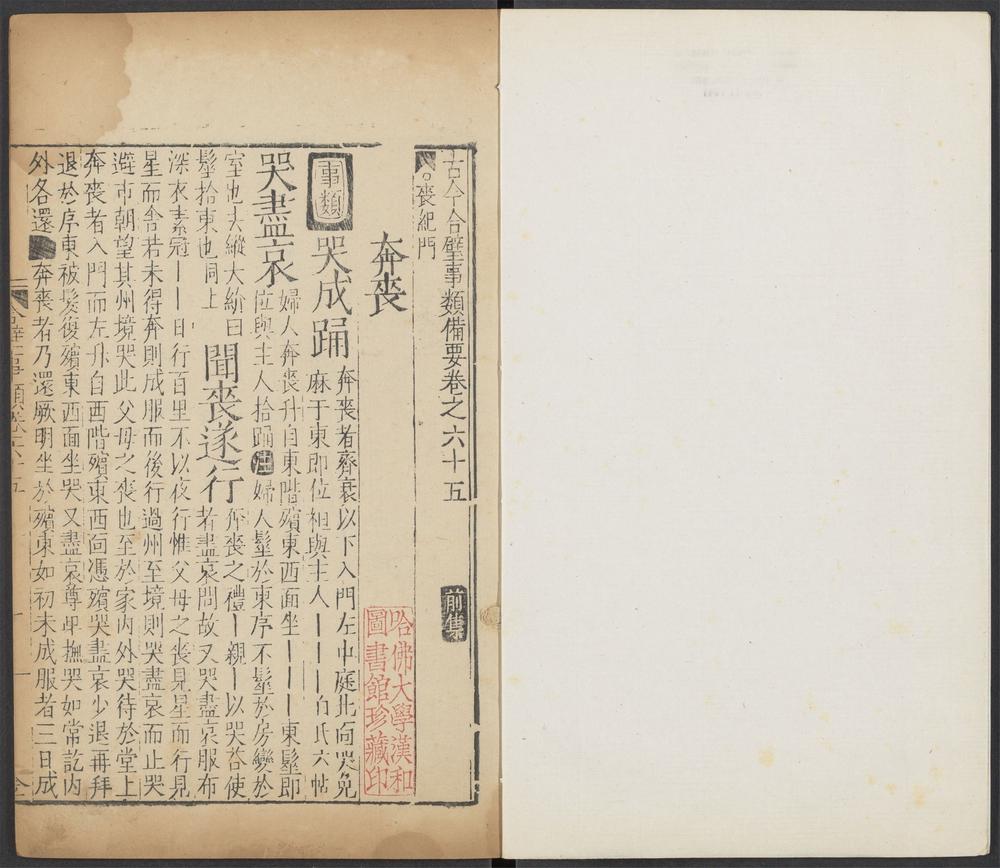 古今合璧事類備要卷之六十五 前集
喪紀門
奔喪
事類 哭成踊 奔喪者齊衰以下入門左中庭北向哭免
麻于東即位袒與主人｜｜｜白氏六帖
哭盡哀 婦人奔喪升自東階殯東西面坐｜｜｜東髽即
位與主人拾踊注婦人髽於東序不髽於房變於
室也去縱大紒曰
髽拾東也同上
聞喪遂行 奔喪之禮｜親｜以哭荅使
者盡哀問故又哭盡哀服布
深衣素冠｜｜日行百里不以夜行惟父母之喪見星而行見
星而舍若未得奔則成服而後行過州至境則哭盡哀而止哭
避市朝望其州境哭此父母之喪也至於家內外哭待於堂上
奔喪者入門而左升自西階殯東西面憑殯哭盡哀少退再拜
退於序東被髮復殯東西面坐哭又盡哀尊卑撫哭如常訖內
外各還 奔喪者乃還厥明坐於殯東如初未成服者三日成
哈佛大學漢和
圖書館珍藏印